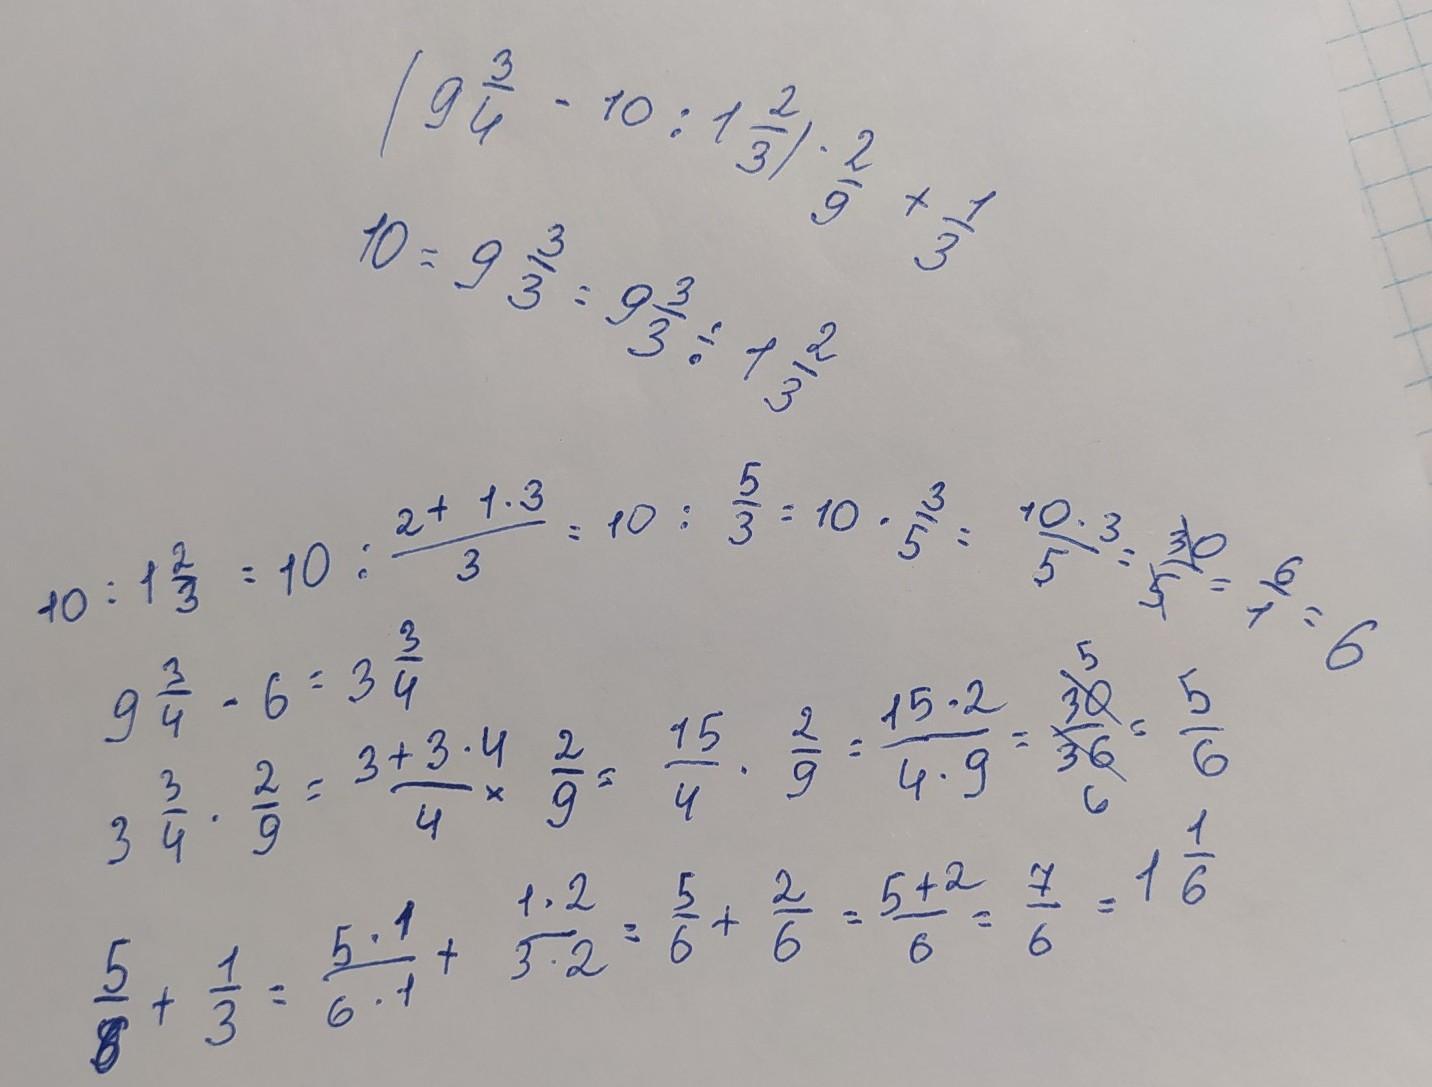 (9 3/4 - 10 : 1 2/3) · 2/9 + 1/3
10 = 9 3/3 = 9 3/3 ÷ 1 2/3
10 : 1 2/3 = 10 : (2 + 1 · 3)/3 = 10 : 5/3 = 10 · 3/5 = (10 · 3)/5 = 30/5 = 6/1 = 6
9 3/4 - 6 = 3 3/4
3 3/4 · 2/9 = (3 + 3 · 4)/4 × 2/9 = 15/4 · 2/9 = (15 · 2)/(4 · 9) = 30/36 5 6 = 5/6
5/6 + 1/3 = (5 · 1)/(6 · 1) + (1 · 2)/(3 · 2) = 5/6 + 2/6 = (5 + 2)/6 = 7/6 = 1 1/6